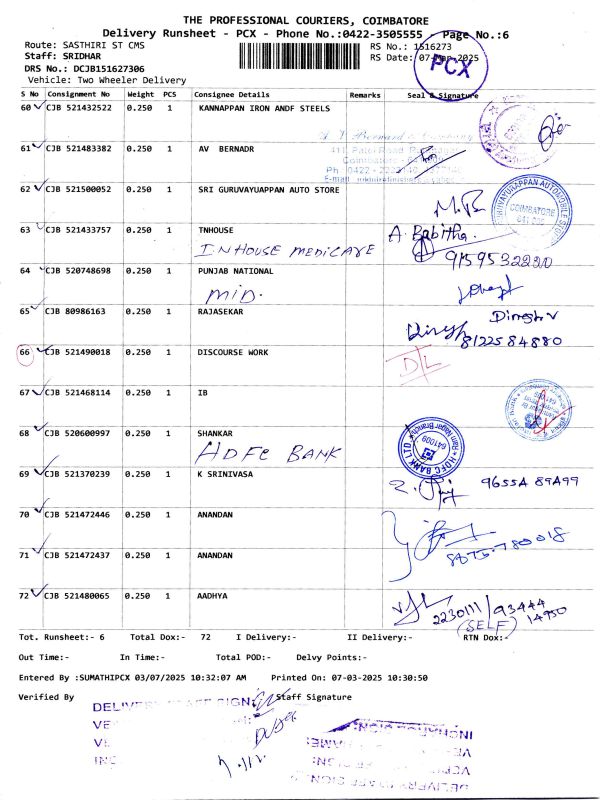 THE PROFESSIONAL COURIERS, COIMBATORE
Delivery Runsheet - PCX - Phone No.:0422-3505555 - Page No.:6
Route: SASTHIRI ST CMS RS No.: 1516273
Staff: SRIDHAR RS Date: 07-Mar-2025
PCX
DRS No.: DCJB151627306
Vehicle: Two Wheeler Delivery
S No Consignment No Weight PCS Consignee Details Remarks Seal & Signature
60 CJB 521432522 0.250 1 KANNAPPAN IRON ANDF STEELS
61 CJB 521483382 0.250 1 AV BERNADR
62 CJB 521500052 0.250 1 SRI GURUVAYUAPPAN AUTO STORE
COIMBATORE
63 CJB 521433757 0.250 1 TNHOUSE A. Babitha.
INHOUSE MEDICARE 9159532220
64 CJB 520748698 0.250 1 PUNJAB NATIONAL
65 CJB 80986163 0.250 1 RAJASEKAR Dinesh V
8122584880
66 CJB 521490018 0.250 1 DISCOURSE WORK D/L
67 CJB 521468114 0.250 1 IB
68 CJB 520600997 0.250 1 SHANKAR
HDFC BANK
HDFC BANK LTD. Ram Nagar Branch 641009
69 CJB 521370239 0.250 1 K SRINIVASA 9655A 89A99
70 CJB 521472446 0.250 1 ANANDAN
71 CJB 521472437 0.250 1 ANANDAN
72 CJB 521480065 0.250 1 AADHYA
2230111 / 93444
(SELF) 14950
Tot. Runsheet:- 6 Total Dox:- 72 I Delivery:- II Delivery:- RTN Dox:-
Out Time:- In Time:- Total POD:- Delvy Points:-
Entered By :SUMATHIPCX 03/07/2025 10:32:07 AM Printed On: 07-03-2025 10:30:50
Verified By Staff Signature